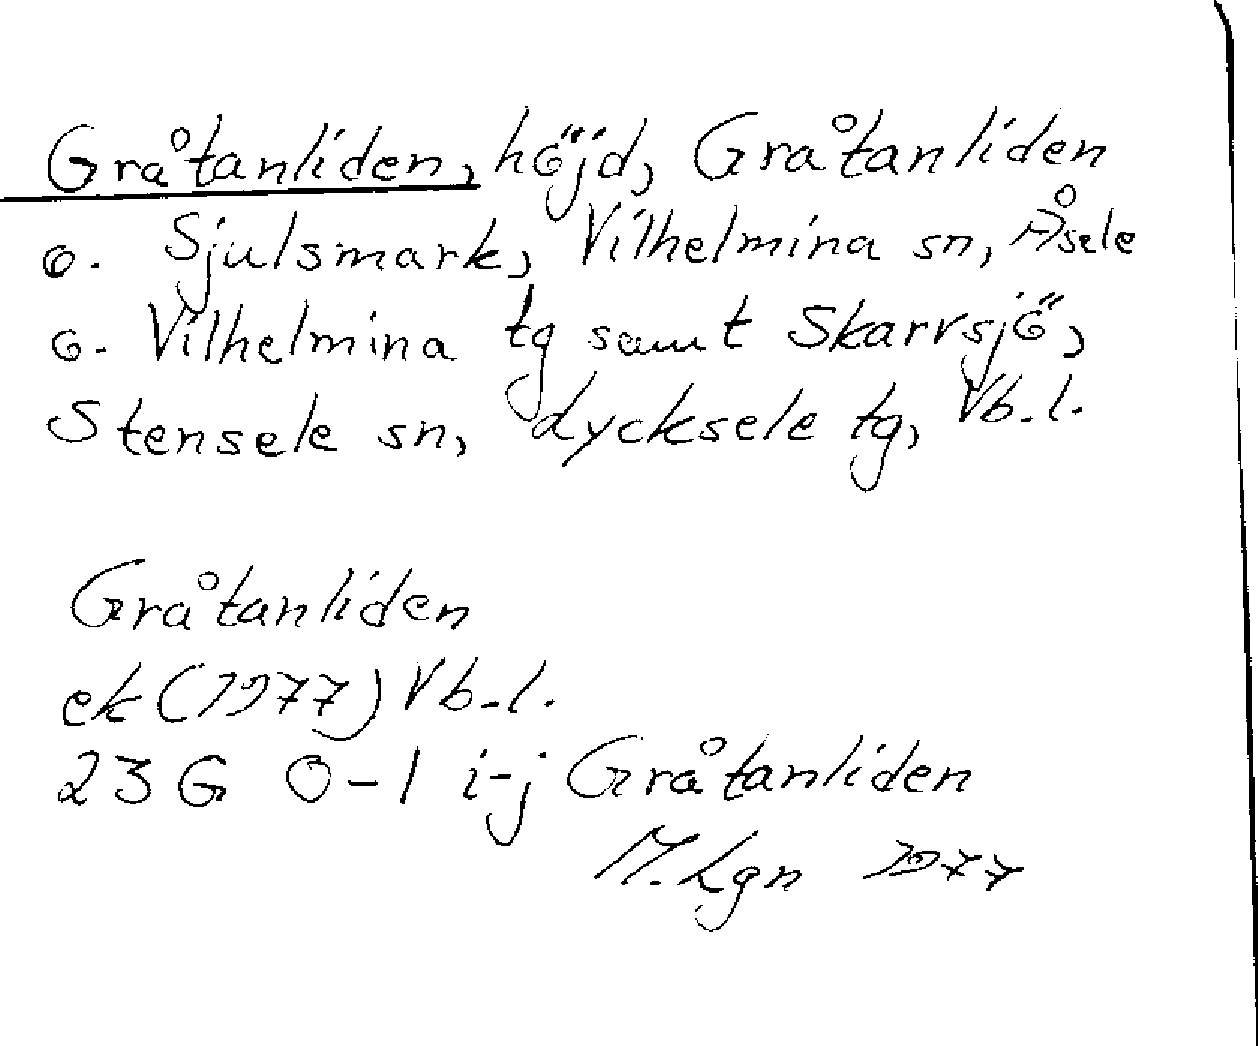 Gråtanliden, höjd, Gråtanliden
o. Sjulsmark, Vilhelmina sn, Åsele
o. Vilhelmina tg samt Skarvsjö,
Stensele sn, Lycksele tg, Vb.l.
Gråtanliden
ek (1977) Vb.l.
23G 0-1 i-j Gråtanliden
M.Lgn 1977